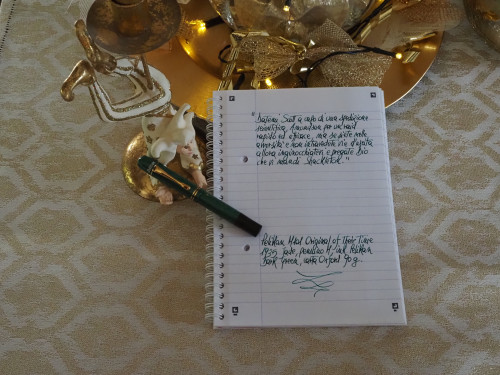 "Datemi Scott a capo di una spedizione
scientifica, Amundsen per un raid
rapido ed efficace, ma se siete nelle
avversità e non intravedete vie d'uscita
allora inginocchiatevi e pregate Dio
che vi mandi Shackleton."
Pelikan Original of Their Time
1935 jade, pennino M, ink Pelikan
Dark Green, carta Oxford 90 g.